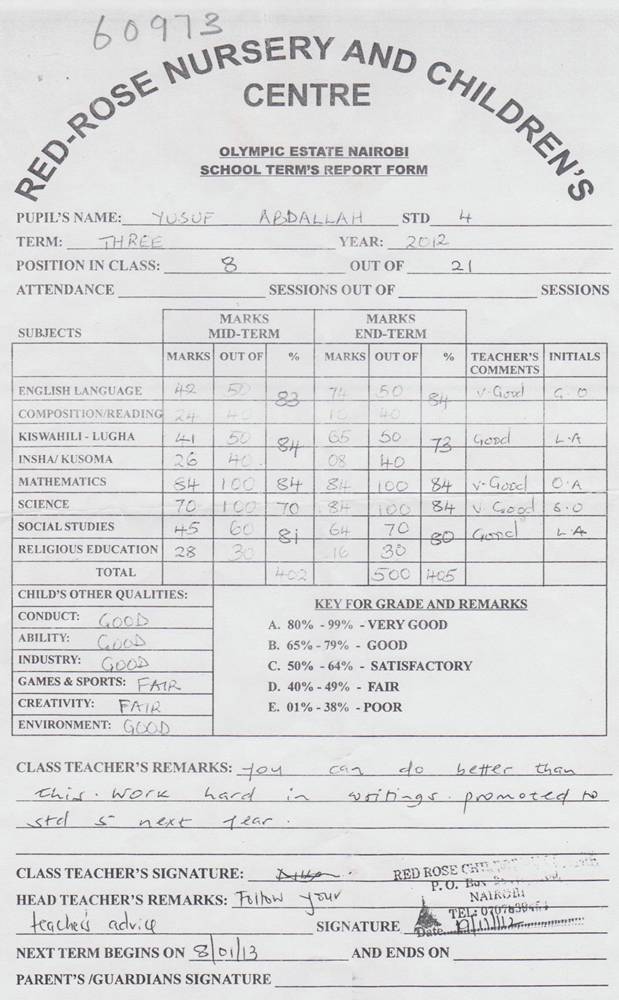 60973
RED-ROSE NURSERY AND CHILDREN'S
CENTRE
OLYMPIC ESTATE NAIROBI
SCHOOL TERM'S REPORT FORM
PUPIL'S NAME: YUSUF ABDALLAH STD 4
TERM: THREE YEAR: 2012
POSITION IN CLASS: 8 OUT OF 21
ATTENDANCE SESSIONS OUT OF SESSIONS
SUBJECTS MARKS MID-TERM MARKS END-TERM
MARKS OUT OF % MARKS OUT OF % TEACHER'S COMMENTS INITIALS
ENGLISH LANGUAGE 42 50 83 74 50 84 V. Good G.O
COMPOSITION/READING 24 40 10 40
KISWAHILI - LUGHA 41 50 84 65 50 73 Good L.A
INSHA/ KUSOMA 26 40 08 40
MATHEMATICS 84 100 84 84 100 84 V. Good O.A
SCIENCE 70 100 70 84 100 84 V Good S.O
SOCIAL STUDIES 45 60 81 64 70 80 Good L.A
RELIGIOUS EDUCATION 28 30 16 30
TOTAL 402 500 405
CHILD'S OTHER QUALITIES:
CONDUCT: GOOD
ABILITY: GOOD
INDUSTRY: GOOD
GAMES & SPORTS: FAIR
CREATIVITY: FAIR
ENVIRONMENT: GOOD
KEY FOR GRADE AND REMARKS
A. 80% - 99% - VERY GOOD
B. 65% - 79% - GOOD
C. 50% - 64% - SATISFACTORY
D. 40% - 49% - FAIR
E. 01% - 38% - POOR
CLASS TEACHER'S REMARKS: You can do better than
this. Work hard in writings. promoted to
std 5 next year.
CLASS TEACHER'S SIGNATURE:
RED ROSE
P. O. Box
NAIROBI
TEL:
Date
HEAD TEACHER'S REMARKS: Follow your
teacher's advice SIGNATURE
NEXT TERM BEGINS ON 8/01/13 AND ENDS ON
PARENT'S /GUARDIANS SIGNATURE